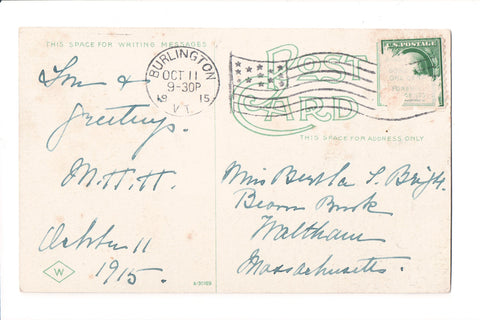 THIS SPACE FOR WRITING MESSAGES
BURLINGTON
OCT 11
9-30P
19 15
VT.
POST
CARD
U.S. POSTAGE
THIS SPACE FOR ADDRESS ONLY
&
greetings.
M.H.H.
October 11
1915.
W
Miss Bertha L. Bright
Beaver Brook
Waltham
Massachusetts.